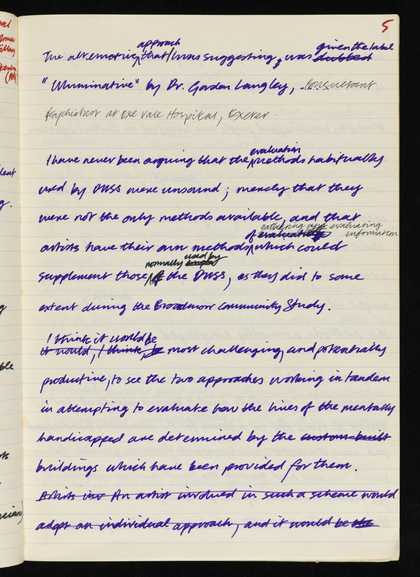 5
approach given the label
The alternative, that I was suggesting, was dubbed
"Illuminative" by Dr. Gordon Langley, Consultant
Psychiatrist at Exe Vale Hospital, Exeter
evaluation
I have never been arguing that the methods habitually
used by DHSS were unsound; merely that they
were not the only methods available, and that
evaluating
information
artists have their own methods of which could
normally used by
supplement those of the DHSS, as they did to some
extent during the Broadmoor Community Study.
I think it would be
it would, I think, be most challenging, and potentially
productive, to see the two approaches working in tandem
in attempting to evaluate how the lives of the mentally
handicapped are determined by the custom-built
buildings which have been provided for them.
Artists inv An artist involved in such a scheme would
adopt an individual approach, and it would be the